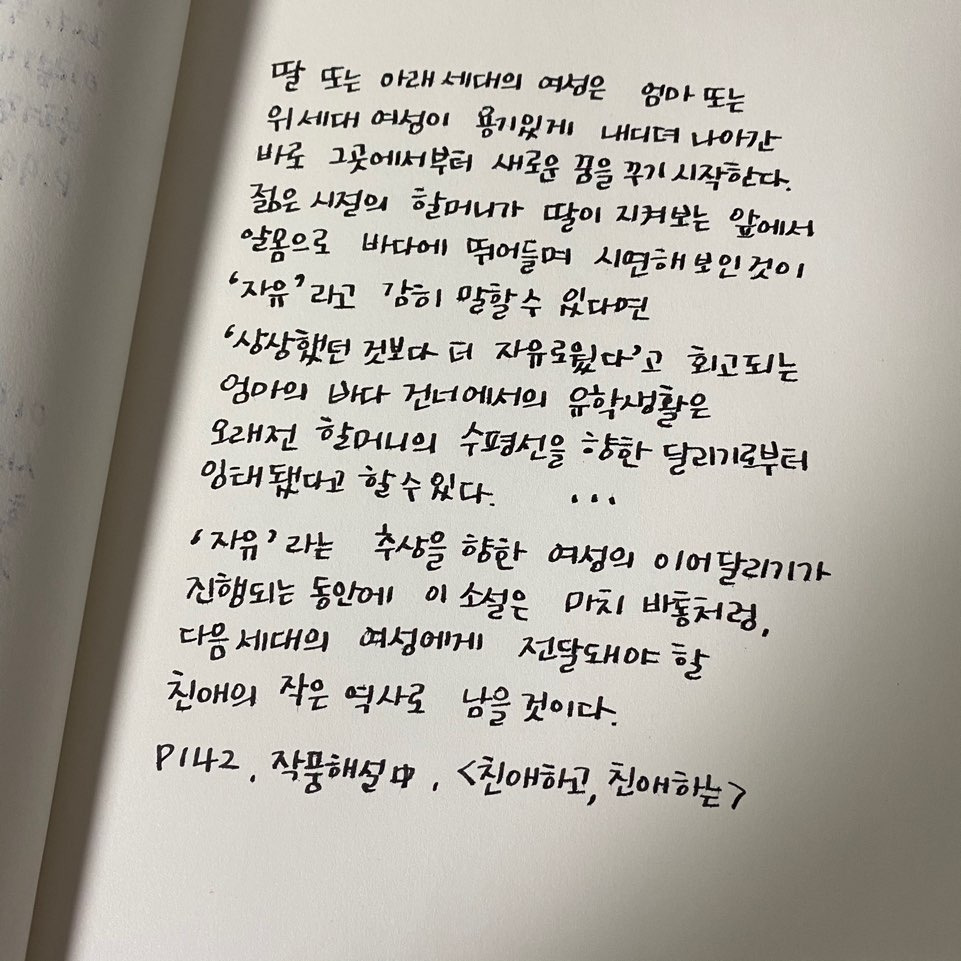 딸 또는 아래 세대의 여성은 엄마 또는
위 세대 여성이 용기있게 내디뎌 나아간
바로 그곳에서부터 새로운 꿈을 꾸기 시작한다.
젊은 시절의 할머니가 딸이 지켜보는 앞에서
알몸으로 바다에 뛰어들며 시연해 보인 것이
‘자유’라고 감히 말할 수 있다면
‘상상했던 것보다 더 자유로웠다’고 회고되는
엄마의 바다 건너에서의 유학생활은
오래전 할머니의 수평선을 향한 달리기로부터
잉태됐다고 할 수 있다. ...
‘자유’라는 추상을 향한 여성의 이어달리기가
진행되는 동안에 이 소설은 마치 바통처럼,
다음 세대의 여성에게 전달돼야 할
친애의 작은 역사로 남을 것이다.
P142. 작품해설 中. <친애하고, 친애하는>